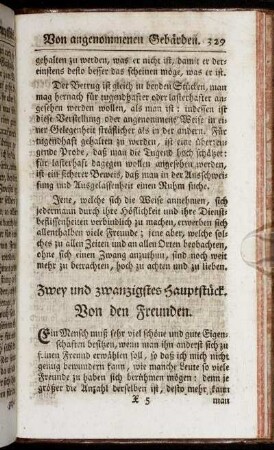 Von angenommenen Gebärden. 329
gehalten zu werden, was er nicht ist, damit er der-
einstens desto besser das scheinen möge, was er ist.
Der Betrug ist gleich in beyden Stücken, man
mag hernach für tugendhafter oder lasterhafter an-
gesehen werden wollen, als man ist: indessen ist
diese Verstellung oder angenommene Weise in ei-
ner Gelegenheit sträflicher als in der andern. Für
tugendhaft gehalten zu werden, ist eine überzeu-
gende Probe, daß man die Tugend hoch schätzet:
für lasterhaft dagegen wollen angesehen werden,
ist ein sicherer Beweis, daß man in der Ausschwei-
fung und Ausgelassenheit einen Ruhm suche.
Jene, welche sich die Weise annehmen, sich
jedermann durch ihre Höflichkeit und ihre Dienst-
beflissenheiten verbindlich zu machen, erwerben sich
allenthalben viele Freunde; jene aber, welche sol-
ches zu allen Zeiten und an allen Orten beobachten,
ohne sich einen Zwang anzuthun, sind noch weit
mehr zu betrachten, hoch zu achten und zu lieben.
Zwey und zwanzigstes Hauptstück.
Von den Freunden.
Ein Mensch muß sehr viel schöne und gute Eigen-
schaften besitzen, wenn man ihn anderst sich zu
einen Freund erwählen soll, so daß ich mich nicht
genug bewundern kann, wie manche Leute so viele
Freunde zu haben sich berühmen mögen: denn je
größer die Anzahl derselben ist, desto mehr kann
X 5 man